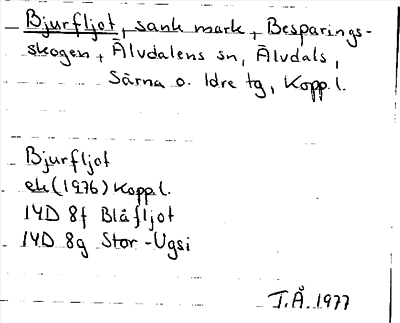 Bjurfljot, sank mark, Besparings-
skogen, Älvdalens sn, Älvdals,
Särna o. Idre tg, Kopp.l.
Bjurfljot
ek (1976) Kopp.l.
14D 8f Blåfljot
14D 8g Stor-Ugsi
T.Å. 1977